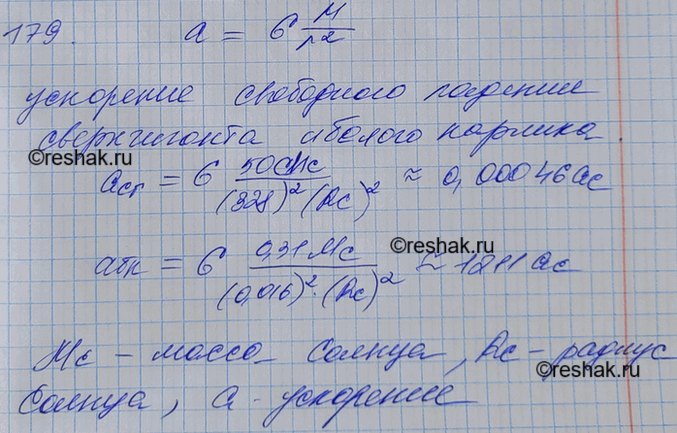 179. a = G M/r²
ускорение свободного падение
сверхгиганта и болого карлика.
©reshak.ru
aсг = G 50Mc/(328)²(Rc)² ≈ 0,00046ac
©reshak.ru
aбк = G 0,31Mc/(0,016)²·(Rc)² ≈ 1211ac
Mc - массо Солнца, Rc - радиус
Солнца, a - ускорение
©reshak.ru